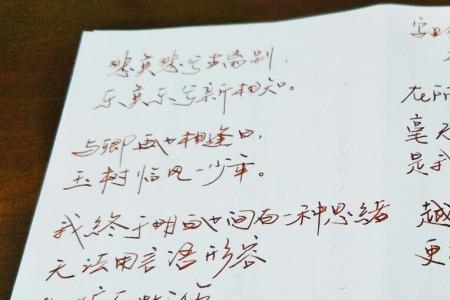 悲莫悲兮生离别，
乐莫乐兮新相知。
与卿再世相逢日，
玉树临风一少年。
我终于明白世间有一种思绪
无法用言语形容
字
在所
毫无
是我
越
更